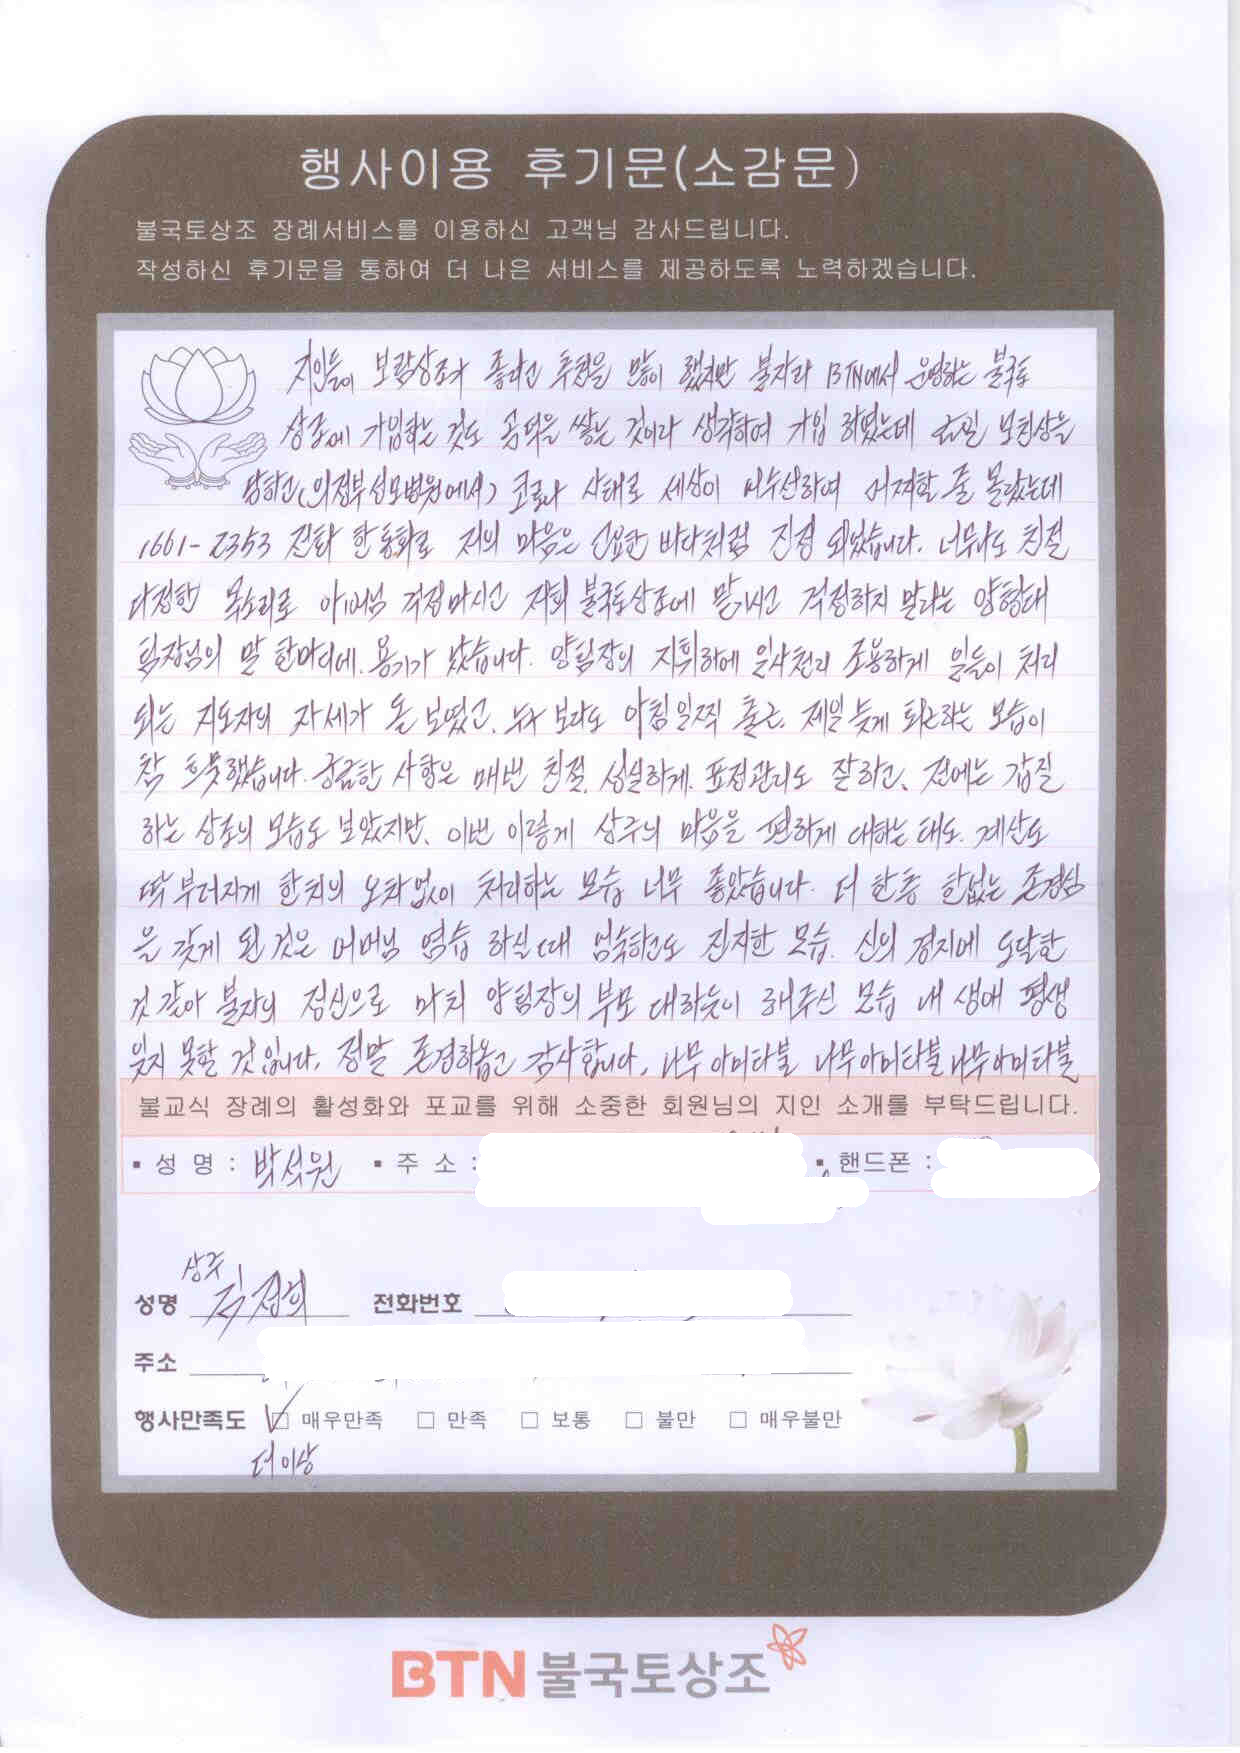 행사이용 후기문(소감문)
불국토상조 장례서비스를 이용하신 고객님 감사드립니다.
작성하신 후기문을 통하여 더 나은 서비스를 제공하도록 노력하겠습니다.
지인들이 보람상조가 좋다고 추천을 많이 했지만 불자라 BTN에서 운영하는 불국토
상조에 가입하는 것도 공덕을 쌓는 것이라 생각하여 가입 하였는데 모친상을
당하고(의정부성모병원에서) 코로나 사태로 세상이 어수선하여 어찌할 줄 몰랐는데
1661-2353 전화 한통화로 저의 마음은 고요한 바다처럼 진정 되었습니다. 너무나도 친절
다정한 목소리로 아버님 걱정마시고 저희 불국토상조에 맡기시고 걱정하지 말라는 양형태
팀장님의 말 한마디에. 용기가 났습니다. 양팀장의 지휘하에 일사천리 조용하게 일들이 처리
되는 지도자의 자세가 돋보였고, 누구 보다도 아침일찍 출근. 제일 늦게 퇴근하는 모습이
참 흐뭇했습니다. 궁금한 사항은 매번 친절, 성실하게. 표정관리도 잘하고, 전에는 갑질
하는 상조의 모습도 보았지만, 이번 이렇게 상주의 마음을 편하게 대하는 태도. 계산도
딱 부러지게 한치의 오차없이 처리하는 모습 너무 좋았습니다. 더 한층 한없는 존경심
을 갖게 된 것은 어머님 염습 하실때 엄숙하고도 진지한 모습. 신의 경지에 도달한
것 같아 불자의 정신으로 마치 양팀장의 부모 대하듯이 해주신 모습 내 생애 평생
잊지 못할 것입니다. 정말 존경하옵고 감사합니다. 나무아미타불 나무아미타불 나무아미타불
불교식 장례의 활성화와 포교를 위해 소중한 회원님의 지인 소개를 부탁드립니다.
▪ 성 명 : 박석원 ▪ 주 소 : ▪ 핸드폰 :
상주
성명 김정희 전화번호
주소
행사만족도 ☑ 매우만족 □ 만족 □ 보통 □ 불만 □ 매우불만
더 이상
BTN 불국토상조